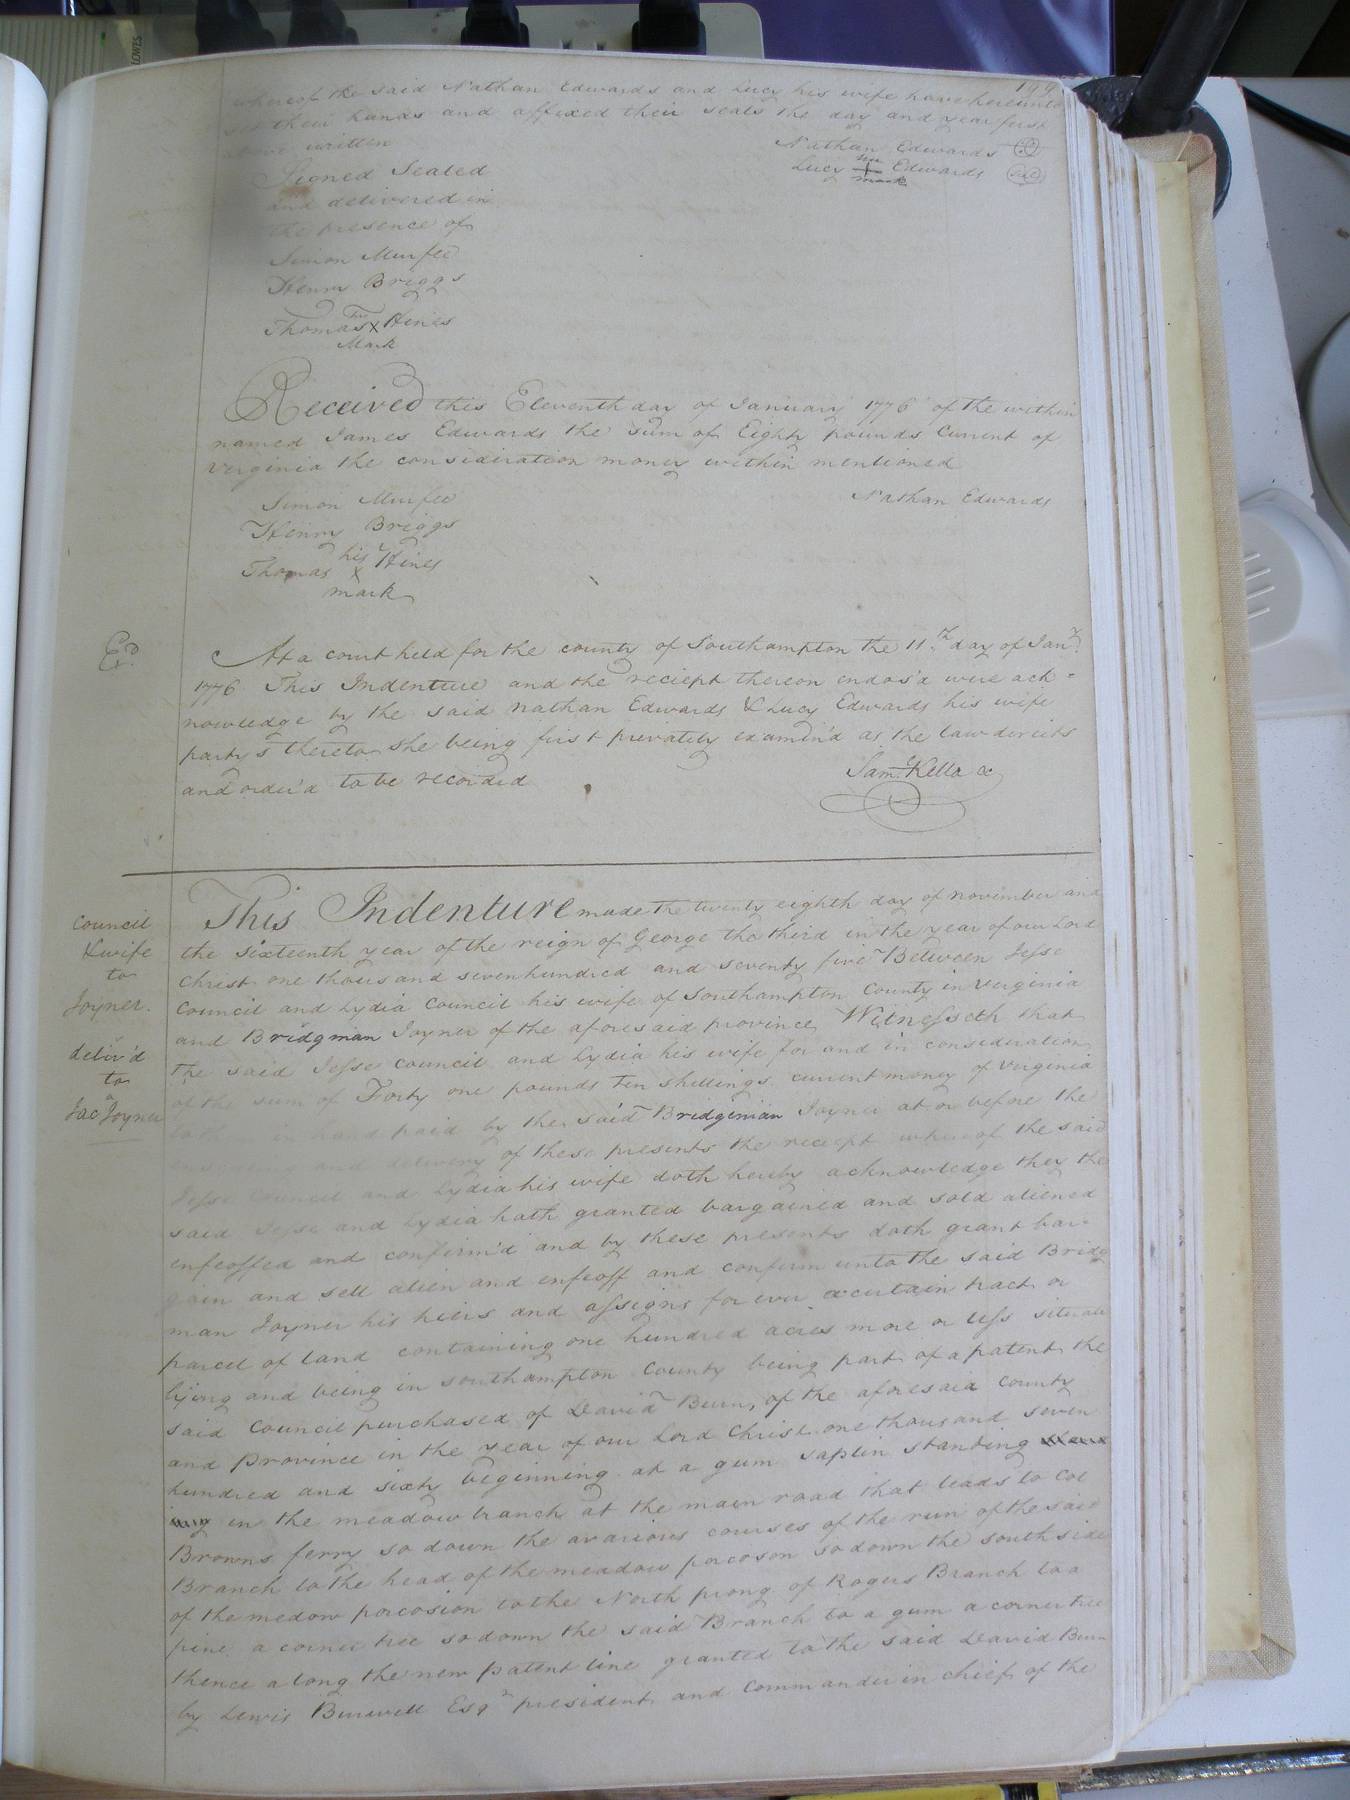 199
whereof the said Nathan Edwards and Lucy his wife have hereunto
set their hands and affixed their seals the day and year first
above written
Nathan Edwards
Lucy her + mark Edwards
Signed Sealed
and delivered in
the presence of
Simon Murfee
Henry Briggs
Thomas his x Mark Hines
Received this Eleventh day of January 1776 of the within
named James Edwards the sum of Eighty pounds Current of
Verginia the consideration money within mentioned
Simon Murfee
Nathan Edwards
Henry Briggs
Thomas his x mark Hines
Ex.d
At a court held for the county of Southampton the 11.th day of Jan.y
1776 This Indenture and the reciept thereon endors'd were ack=
nowledge by the said Nathan Edwards & Lucy Edwards his wife
party's thereto she being first privately examin'd as the law directs
and order'd to be recorded
Sam. Kello
Council
& wife
to
Joyner.
deliv'd
to
Jac Joyner
This Indenture made the twenty eighth day of november and
the sixteenth year of the reign of George the third in the year of our Lord
Christ one thousand seven hundred and seventy five Between Jesse
Council and Lydia Council his wife of Southampton County in Verginia
and Bridgman Joyner of the aforesaid province Witnesseth that
The said Jesse Council and Lydia his wife for and in consideration
of the sum of Forty one pounds Ten shillings current money of Verginia
to them in hand paid by the said Bridgman Joyner at or before the
ensealing and delivery of these presents the receipt whereof the said
Jesse Council and Lydia his wife doth hereby acknowledge they the
said Jesse and Lydia hath granted bargained and sold aliened
enfeoffed and confirm'd and by these presents doth grant bar=
gain and sell alien and enfeoff and confirm unto the said Bridg
man Joyner his hiers and assigns for ever a certain tract or
parcel of land containing one hundred acres more or less situate
lying and being in southampton County being part of a patent the
said Council purchased of David Burn, of the aforesaid county
and province in the year of our Lord Christ one thousand seven
hundred and sixty beginning at a gum saplin standing
in the meadow branch at the main road that leads to Col
Browns ferry so down the avarious courses of the run of the said
Branch to the head of the meadow pocoson so down the south side
of the medow porcosion to the North prong of Rogers Branch to a
pine a corner tree so down the said Branch to a gum a corner tree
thence along the new patent line granted to the said David Burn
by Lewis Burwell Esqr president and Commander in chief of the